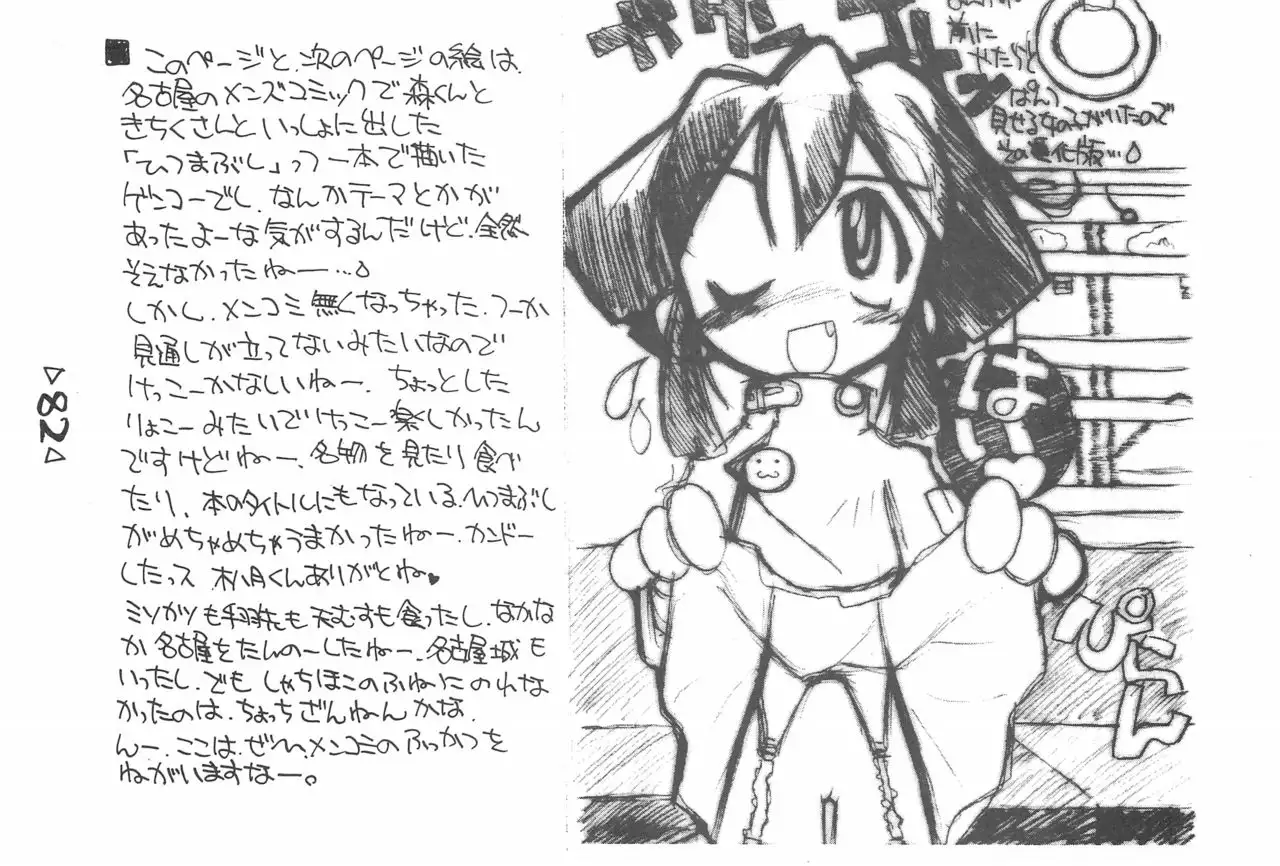 ■ このページと、次のページの絵は、
名古屋のメンズコミックで森くんと
きちくさんといっしょに出した
「ひつまぶし」って一本で描いた
ゲンコーでし、なんかテーマとかが
あったよーな気がするんだけど、全然
そえなかったねー…
しかし、メンコミ無くなっちゃった、つーか
見通しが立ってないみたいなので
けっこーかなしいねー、ちょっとした
りょこーみたいでけっこー楽しかったん
ですけどねー、名物を見たり食べ
たり、本のタイトルにもなっている、ひつまぶし
がめちゃめちゃうまかったねー、カンドー
したっス 松月くんありがとね♥
ミソカツも手羽先も天むすも食ったし、なかな
か名古屋をたんのーしたねー、名古屋城も
いったし、でも しゃちほこのふねにのれな
かったのは、ちょっちざんねんかな、
んー、ここは、ぜひ、メンコミのふっかつを
ねがいますなー。
82
前に
やたらと
ぱんつ
見せる女の子がいたので
その進化版…
はい
ぷらん